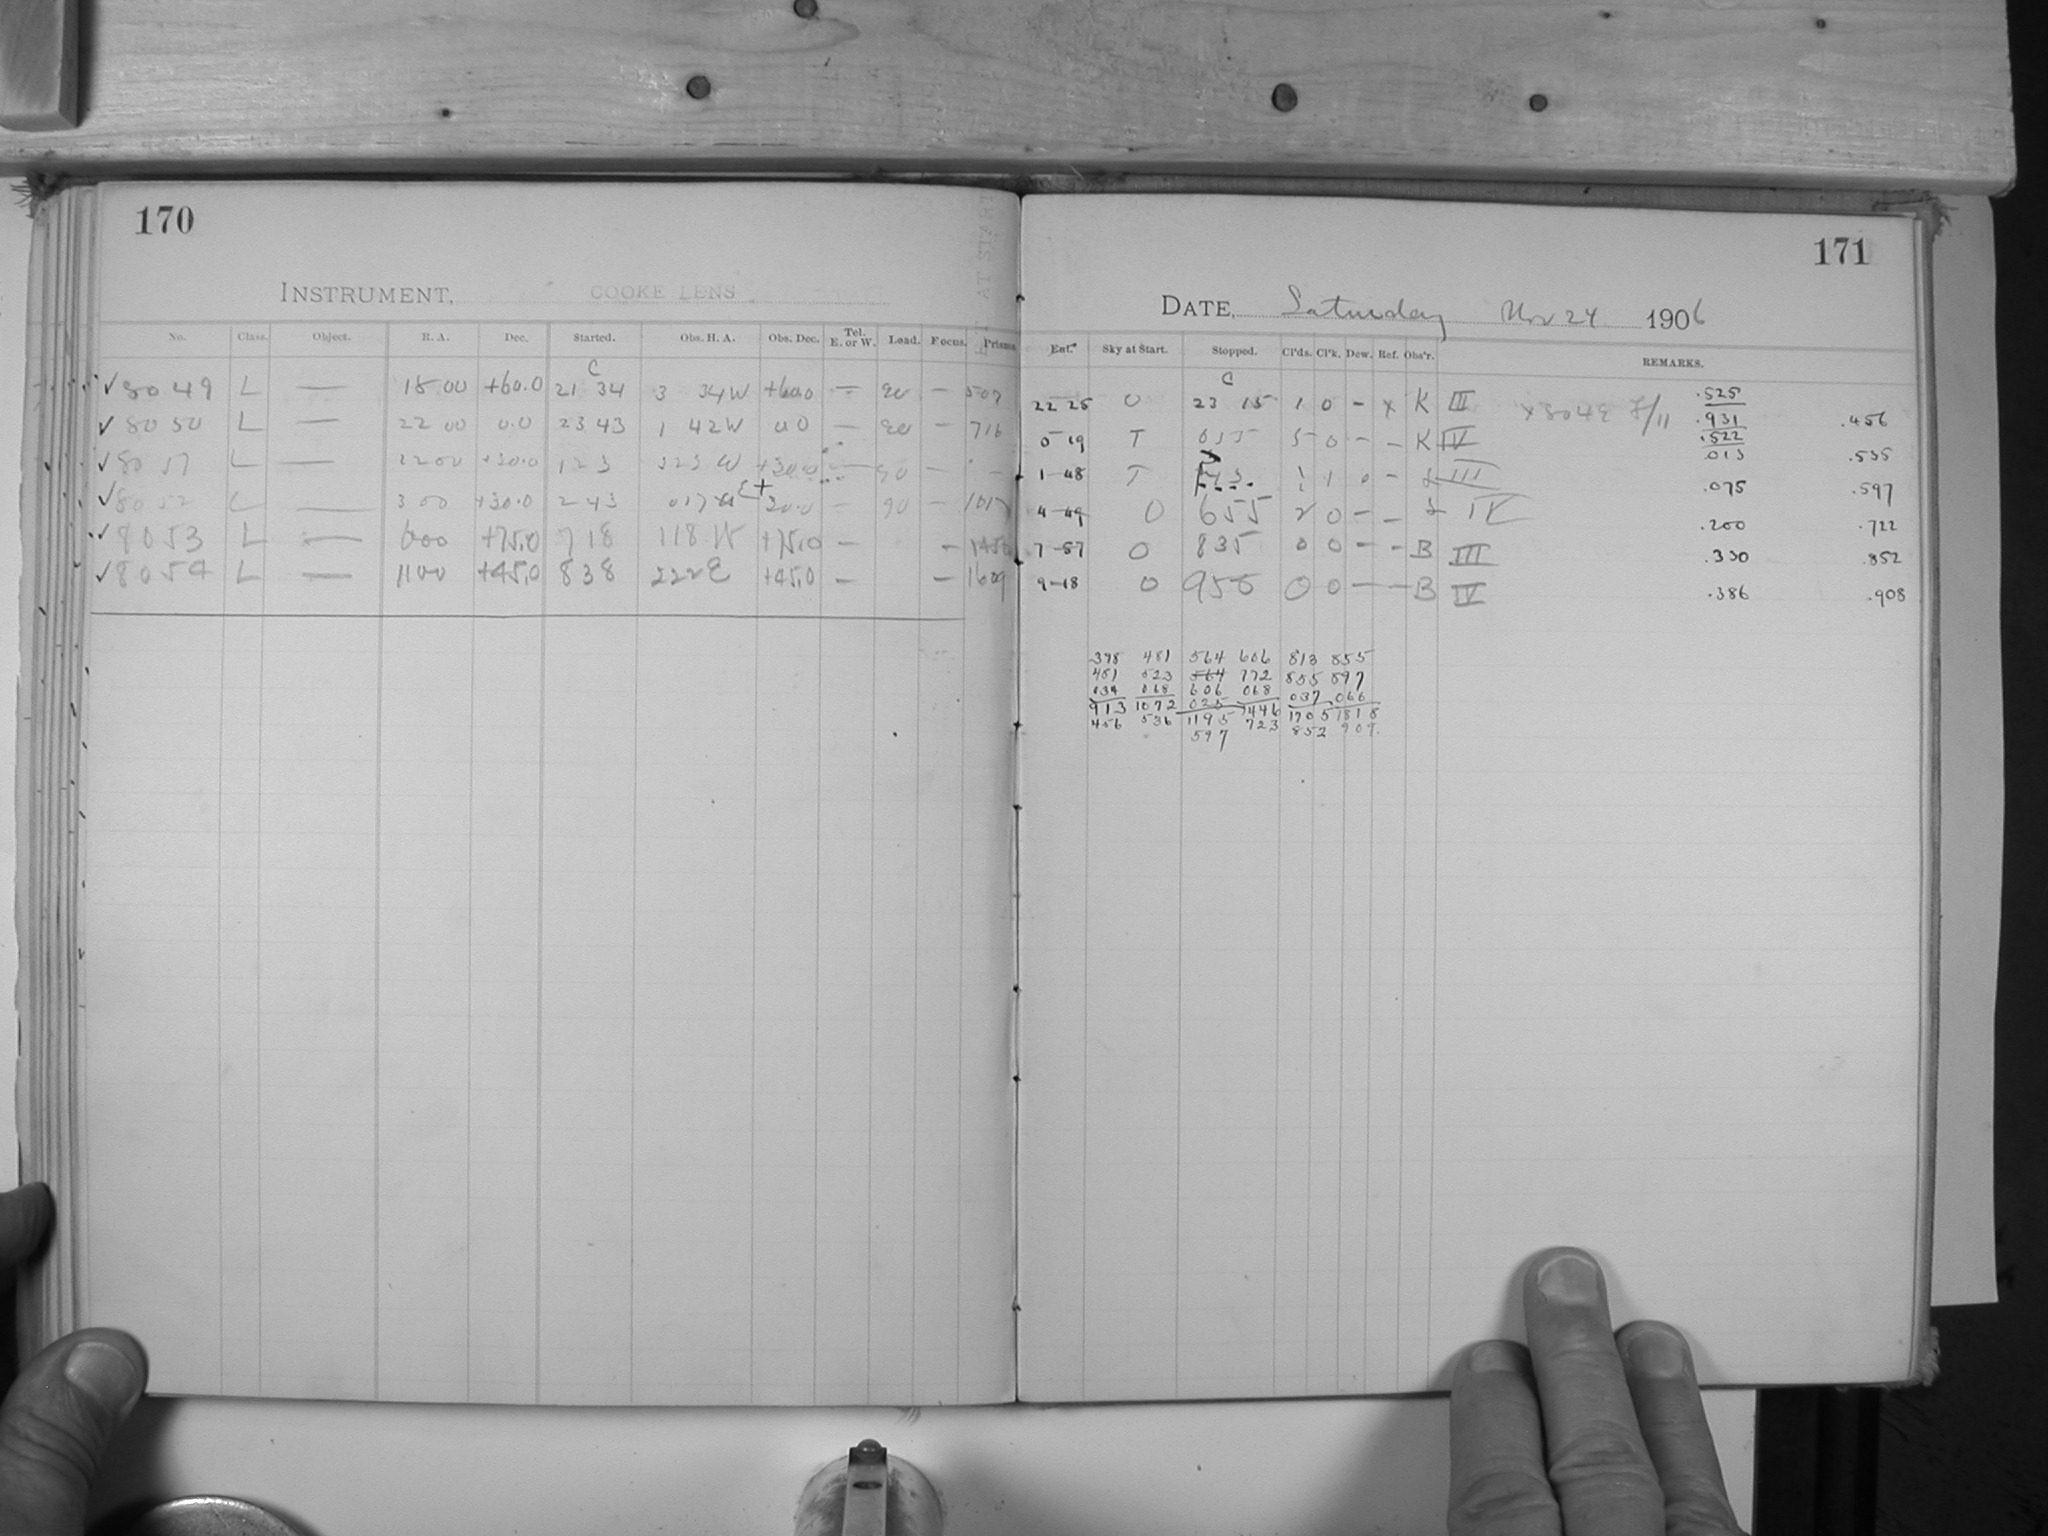 170
INSTRUMENT, COOKE LENS
No. Class. Object. R. A. Dec. Started. Obs. H. A. Obs. Dec. Tel. E. or W. Load. Focus.
C
✓8049 L — 18 00 +60.0 21 34 3 34W +60.0 — 90 — 507
✓8050 L — 22 00 0.0 23 43 1 42W 0.0 — 90 — 716
✓ L — 22 00 +30.0 1 23 3 23 W +30.0 — 90 — —
✓8052 L — 3 00 +30.0 2 43 0 17 E + 30.0 — 90 — 1017
✓8053 L — 6 00 +75.0 7 18 1 18 W +75.0 — —
✓8054 L — 11 00 +45.0 8 38 2 22 E +45.0 — — 1609
171
DATE, Saturday Nov 24 1906
Sky at Start. Stopped. Cl'ds. Cl'k. Dew. Ref. Obs'r. REMARKS.
C
22 25 0 23 15 1 0 — x K III x F/11 .525
.931 .456
0-19 T 0 55 5 0 — — K IV .522
.013 .535
1-48 T 1 0 — L III .075 .597
4-49 0 6 55 2 0 — — L IV .200 .722
7-57 0 8 35 0 0 — — B III .330 .852
9-18 0 9 58 0 0 — — B IV .386 .908
398 481 564 606 813 855
451 523 564 772 855 897
034 068 606 068 037 066
913 1072 025 1446 1705 1818
456 536 1195 723 852 909
597